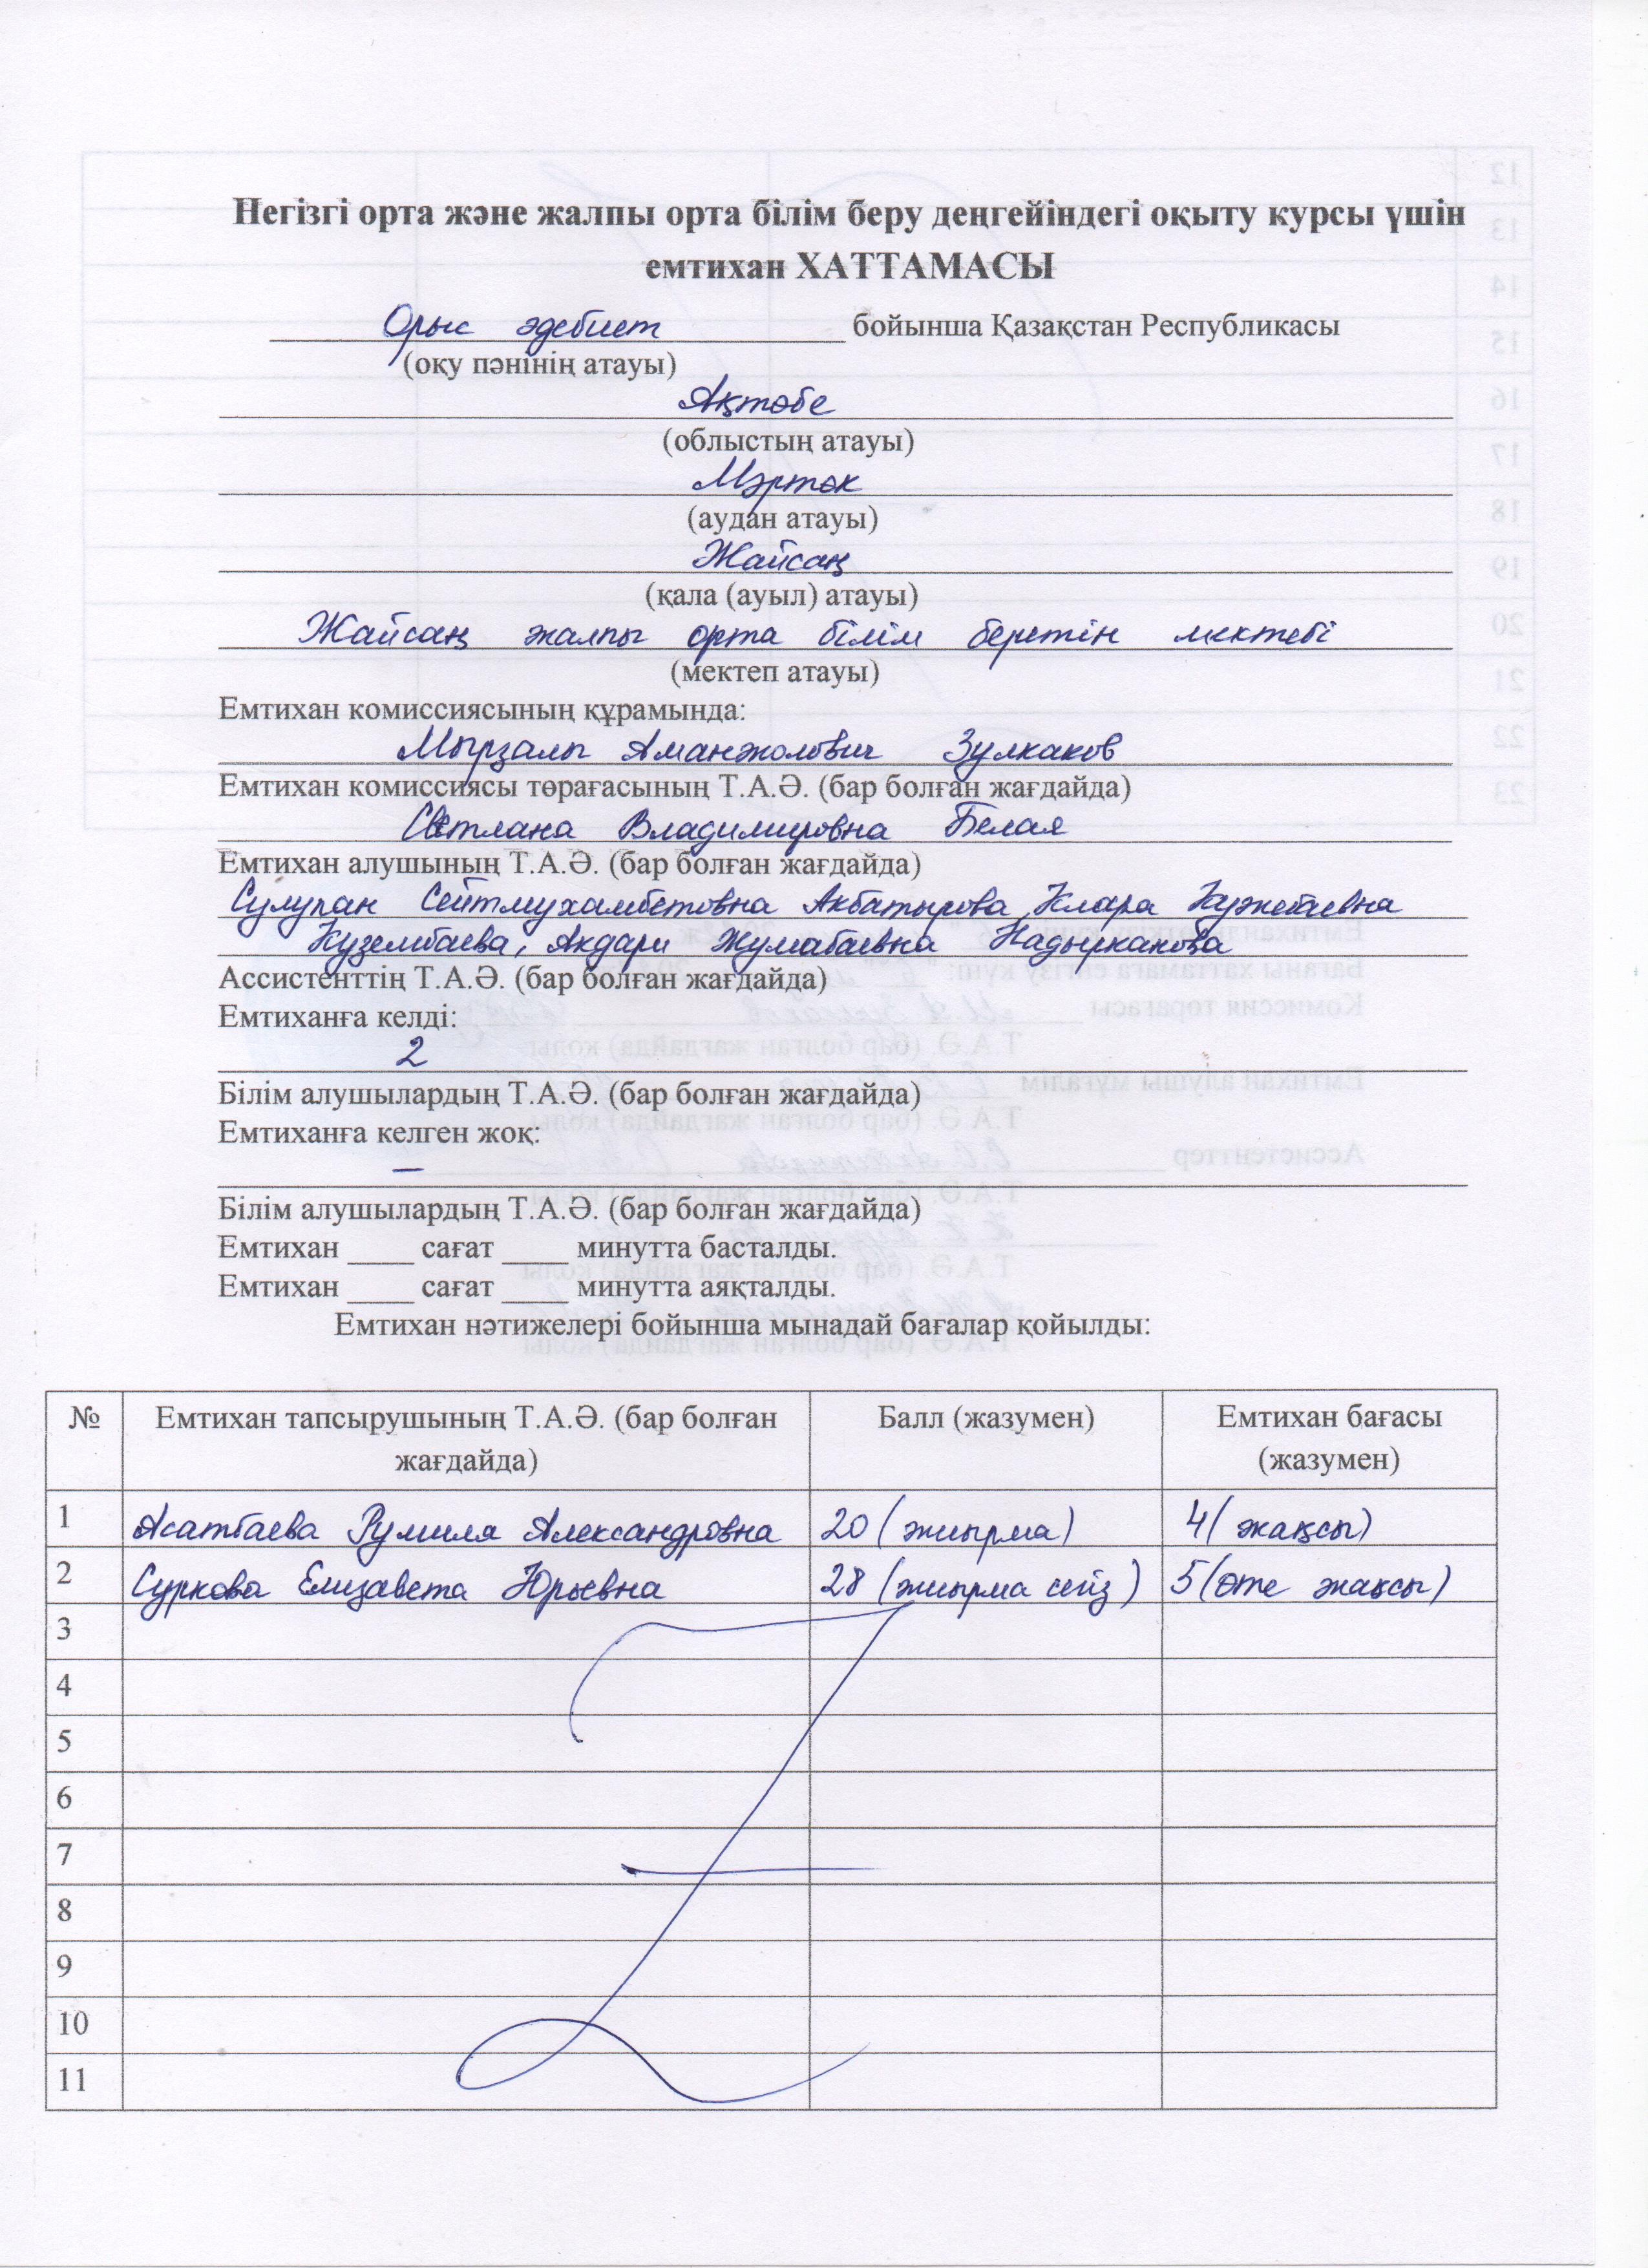 Негізгі орта және жалпы орта білім беру деңгейіндегі оқыту курсы үшін
емтихан ХАТТАМАСЫ
Орыс әдебиет бойынша Қазақстан Республикасы
(оқу пәнінің атауы)
Ақтөбе
(облыстың атауы)
Мәртөк
(аудан атауы)
Жайсаң
(қала (ауыл) атауы)
Жайсаң жалпы орта білім беретін мектебі
(мектеп атауы)
Емтихан комиссиясының құрамында:
Мырзалы Аманжолович Зулкаков
Емтихан комиссиясы төрағасының Т.А.Ә. (бар болған жағдайда)
Светлана Владимировна Белая
Емтихан алушының Т.А.Ә. (бар болған жағдайда)
Сулупан Сейтмухамбетовна Акбатырова, Клара Кужебаевна
Кузембаева, Акдари Жумабаевна Надырканова
Ассистенттің Т.А.Ә. (бар болған жағдайда)
Емтиханға келді:
2
Білім алушылардың Т.А.Ә. (бар болған жағдайда)
Емтиханға келген жоқ:
–
Білім алушылардың Т.А.Ә. (бар болған жағдайда)
Емтихан ____ сағат ____ минутта басталды.
Емтихан ____ сағат ____ минутта аяқталды.
Емтихан нәтижелері бойынша мынадай бағалар қойылды:
№ Емтихан тапсырушының Т.А.Ә. (бар болған жағдайда) Балл (жазумен) Емтихан бағасы (жазумен)
1 Асатбаева Румиля Александровна 20 (жиырма) 4 (жақсы)
2 Суркова Елизавета Юрьевна 28 (жиырма сегіз) 5 (өте жақсы)
3
4
5
6
7
8
9
10
11